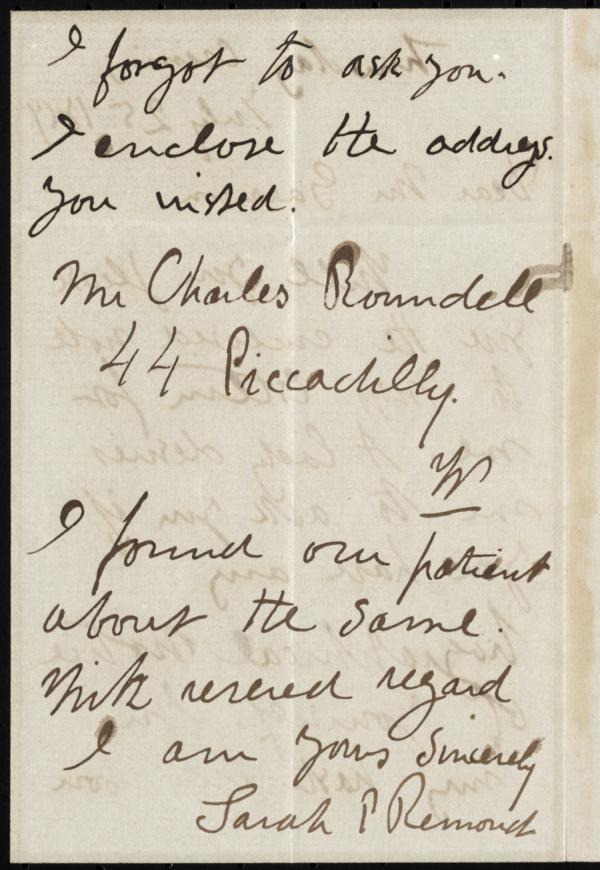 I forgot to ask you.
I enclose the address.
you wished.
Mr Charles Roundell
44 Piccadilly.
W
I found our patient
about the same.
With renewed regard
I am yours Sincerely
Sarah P Remond